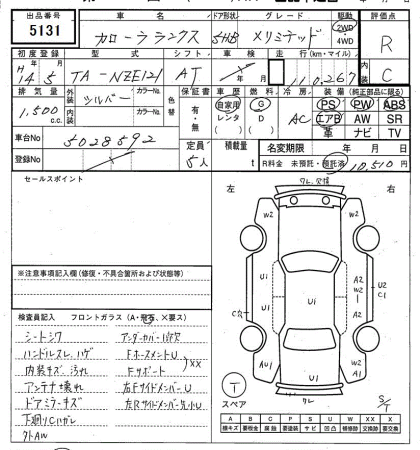 出品番号 車名 ドア形状 グレード 駆動 評価点
5131 カローラランクス 5HB Xリミテッド 2WD 4WD R
初度登録 型式 シフト 車検 走行(km・マイル) 内装
H14年5月 TA-NZE121 AT 110,267 C
排気量 外装 カラーNo. 色替 保証書 車歴 燃料 冷房 装備(純正部品に限る)
1,500c.c. シルバー 有・無 自家用 レンタ G D AC PS PW ABS
内装 カラーNo. エアB AW SR
革 ナビ TV
車台No 5028592 定員 5人 積載量 t 名変期限 年 月 日
登録No R料金 未預託・預託済 10,510円
セールスポイント
左 右
ワレ、欠損
W2 W2
U1 U1 A2 W2 A2 U2 C1
W2 W2
AU1 U1 A1
ワレ
スペア T
S/T
※注意事項記入欄(修復・不具合箇所および状態等)
検査員記入 フロントガラス(A・飛石、X要ス)
シートシワ アンダーカバー1部欠
ハンドルスレ、ハゲ FホースメントU
内装キズ、汚れ Fサポート XX
アンテナ壊れ 右FサイドメンバーU
ドアミラーキズ 左RサイドメンバーU
下廻りC1ハガレ
外AW
A B C P S U W XX X
線キズ 要板金 腐蝕 要塗装 サビ 凹凸 補修跡 交換跡 要交換